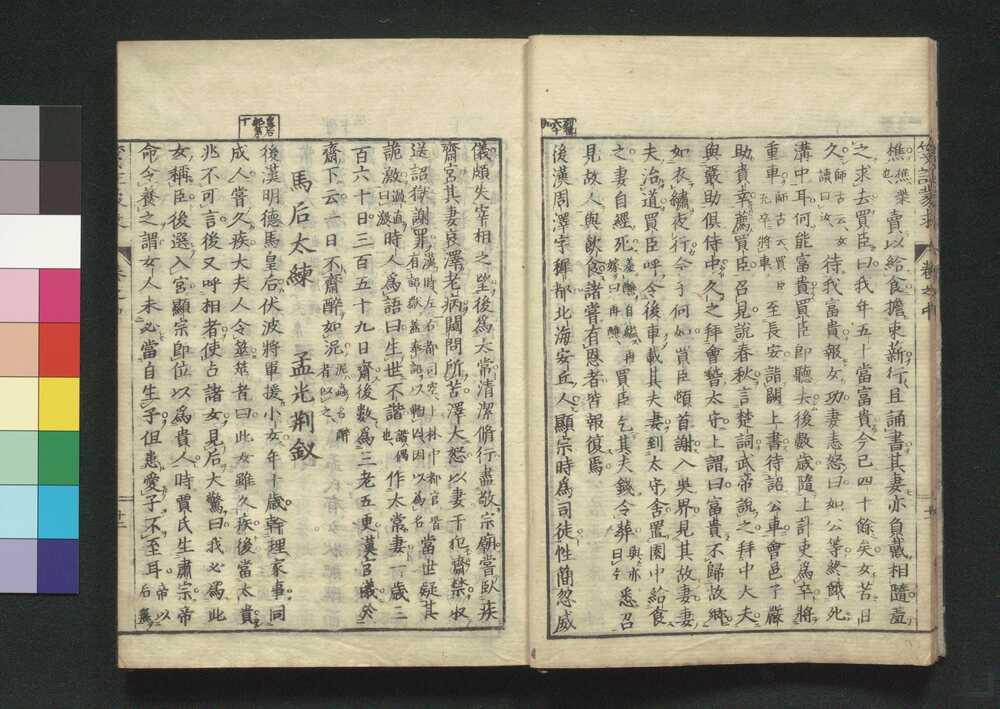 樵樵業也賣以給食擔束薪行且誦書其妻亦負戴相隨羞
之求去買臣曰我年五十當富貴今已四十餘矣女苦日
久師古云女讀曰汝待我富貴報女功妻恚怒曰如公等終餓死
溝中耳何能富貴買臣即聽去後數歲隨上計吏為卒將
重車至長安詣闕上書待詔公車會邑子嚴
助貴幸薦買臣召見說春秋言楚詞武帝說之拜中大夫
與嚴助俱侍中久之拜會稽太守上謂曰富貴不歸故鄉
如衣繡夜行今子何如買臣頓首謝入吳界見其故妻妻
夫治道買臣呼令後車載其夫妻到太守舍置園中給食
之妻自經死買臣乞其夫錢令葬悉召
見故人與飲食諸嘗有恩者皆報復焉
後漢周澤字穉都北海安丘人顯宗時為司徒性簡忽威
儀頗失宰相之望後為太常清潔脩行盡敬宗廟嘗臥疾
齋宮其妻哀澤老病闚問所苦澤大怒以妻干犯齋禁收
送詔獄謝罪當世疑其
詭激時人為語曰生世不諧作太常妻一歲三
百六十日三百五十九日齋後數為三老五更漢官儀於
齋下云一日不齋醉如泥
馬后大練 孟光荊釵
後漢明德馬皇后伏波將軍援小女年十歲幹理家事同
成人嘗久疾大夫人令筮筮者曰此女雖久疾後當大貴
兆不可言後又呼相者使占諸女見后大驚曰我必為此
女稱臣後選入宮顯宗即位以為貴人時賈氏生肅宗帝
命令養之謂女人未必當自生子但患愛子不至耳